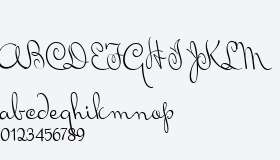 ABCDEFGHIJKLM
abcdeghikmnop
0123456789